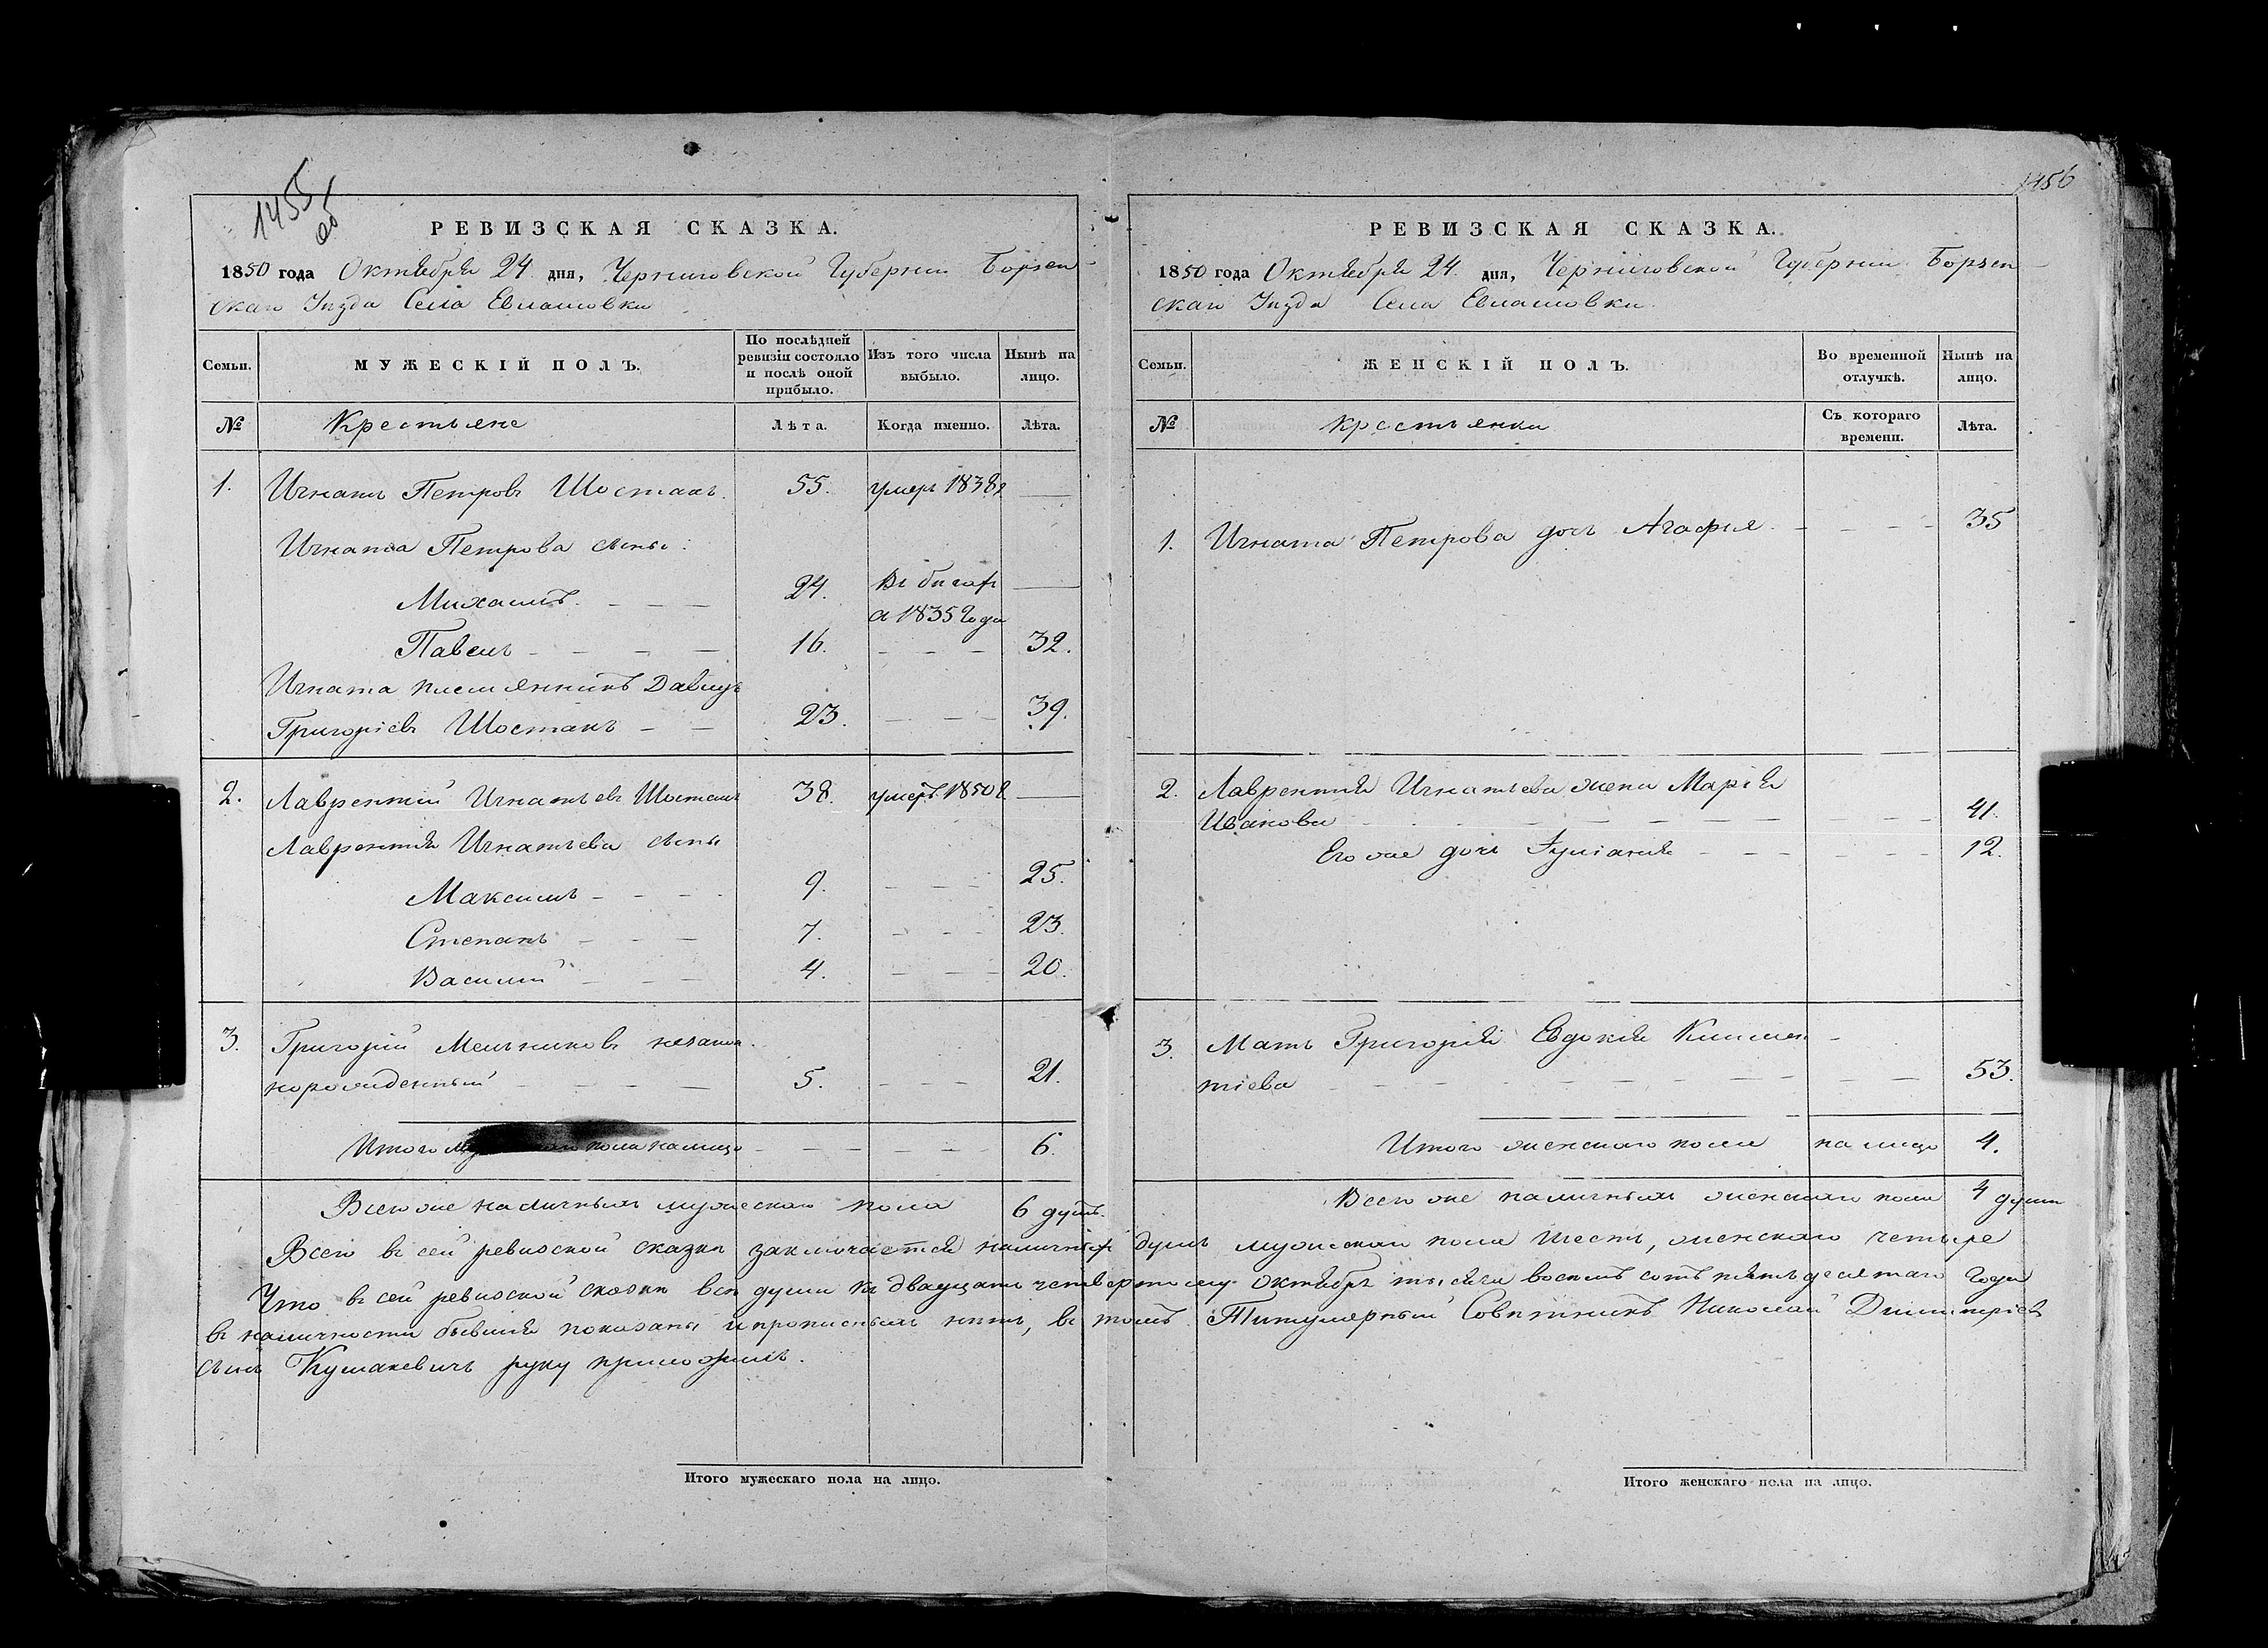 1455
об
РЕВИЗСКАЯ СКАЗКА.
1850 года Октября 24 дня, Черниговской Губернии Борзен-
скаго Уѣзда Села Евлашовки
Семьи.
МУЖЕСКІЙ ПОЛЪ.
По послѣдней
ревизіи состояло
и послѣ оной
прибыло.
Изъ того числа
выбыло.
Нынѣ на
лицо.
№
Крестьяне
Лѣта.
Когда именно.
Лѣта.
1. Игнатъ Петровъ Шостакъ. 55. умеръ 1838 г
Игната Петрова сыны:
Михаилъ. 24. Въ бѣгахъ
с 1835 года
Павелъ 16. 32.
Игната племянникъ Давидъ
Григоріевъ Шостакъ 23. 39.
2. Лаврентій Игнатьевъ Шостакъ 38. умеръ 1850 г.
Лаврентія Игнатьева сыны
Максимъ 9. 25.
Степанъ 7. 23.
Василій 4. 20.
3. Григорій Мельниковъ незакон-
норожденный 5. 21.
Итого пола налицо 6.
Всего же наличныхъ мужескаго пола 6 душъ.
1456
РЕВИЗСКАЯ СКАЗКА.
1850 года Октября 24 дня, Черниговской Губерніи Борзен-
скаго Уѣзда Села Евлашовки.
Семьи.
ЖЕНСКІЙ ПОЛЪ.
Во временной
отлучкѣ.
Нынѣ на
лицо.
№
крестьянки
Съ котораго
времени.
Лѣта.
1. Игната Петрова дочь Агафия 35
2. Лаврентия Игнатьева жена Марія
Иванова 41.
Его же дочь Іуліания 12.
3. Мать Григорія Евдокия Климен-
тіева 53.
Итого женскаго пола на лицо 4.
Всего же наличныхъ женскаго пола 4 души
Всего въ сей ревизской сказкѣ заключается наличныхъ душъ мужескаго пола шесть, женскаго четыре
Что въ сей ревизской сказкѣ всѣ души къ двадцать четвертому октября тысяча восемь сотъ пятьдесятаго года
въ наличности бывшия показаны и прописныхъ нѣтъ, въ томъ Титулярный Совѣтникъ Николай Димитріевъ
сынъ Кушакевичъ руку приложилъ.
Итого мужескаго пола на лицо.
Итого женскаго пола на лицо.